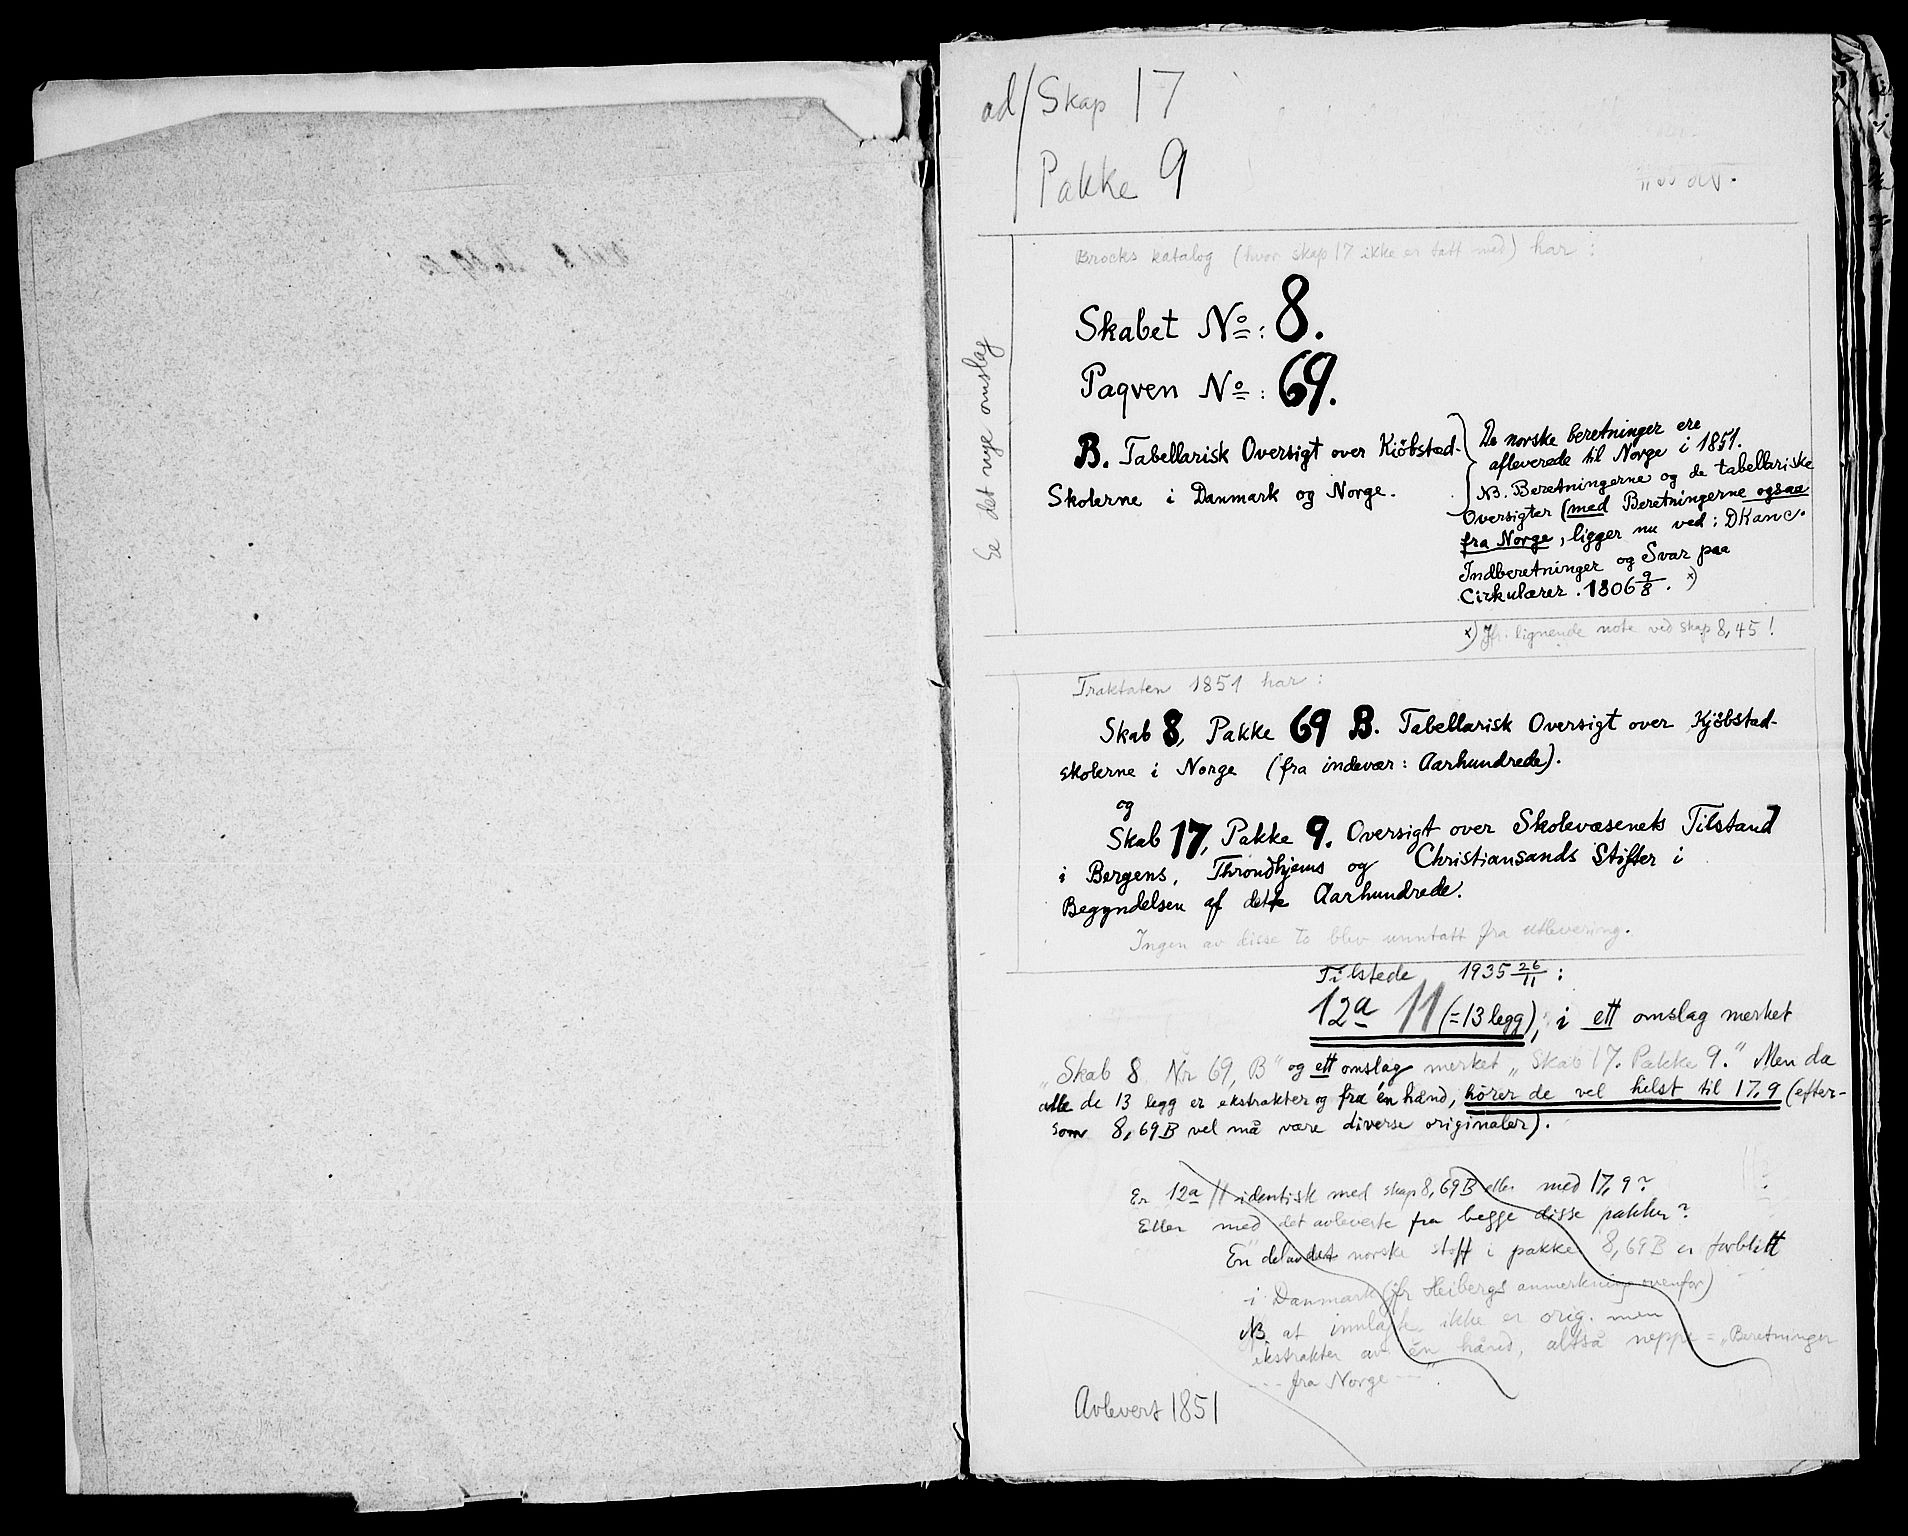 ad/Skap 17
Pakke 9
Brocks katalog (hvor skap 17 ikke er tatt med) har :
Se det nye omslag
Skabet No: 8.
Paqven No: 69.
B. Tabellarisk Oversigt over Kiöbsted-
Skolerne i Danmark og Norge.
De norske beretninger ere
afleverede til Norge i 1851.
NB. Beretningerne og de tabellariske
Oversigter (med Beretningerne ogsaa
fra Norge, ligger nu ved: DKanc.
Indberetninger og Svar paa
Cirkulærer. 1806 9/8. x)
x) Jfr. lignende note ved skap 8, 45!
Traktaten 1851 har :
Skab 8, Pakke 69 B. Tabellarisk Oversigt over Kjöbstad-
skolerne i Norge (fra indevær: Aarhundrede).
og
Skab 17, Pakke 9. Oversigt over Skolevæsenets Tilstand
i Bergens, Throndhjems og Christiansands Stifter i
Begyndelsen af dette Aarhundrede.
Ingen av disse to blev unntatt fra utlevering.
Tilstede 1935 26/11 :
12a 11 (=13 legg), i ett omslag merket
„Skab 8 Nr 69, B" og ett omslag merket „Skab 17. Pakke 9." Men da
alle de 13 legg er ekstrakter og fra én hånd, hører de vel helst til 17,9 (efter-
som 8,69B vel må være diverse originaler).
Er 12a 11 identisk med skap 8, 69B eller med 17, 9?
Eller med det avleverte fra begge disse pakker?
En del av det norske stoff i pakke 8, 69B er forblitt
i Danmark (jfr Heibergs anmerkning ovenfor)
NB. at innlagte ikke er orig. men
ekstrakter av én hånd, altså neppe = „Beretninger
--- fra Norge ---".
Avlevert 1851